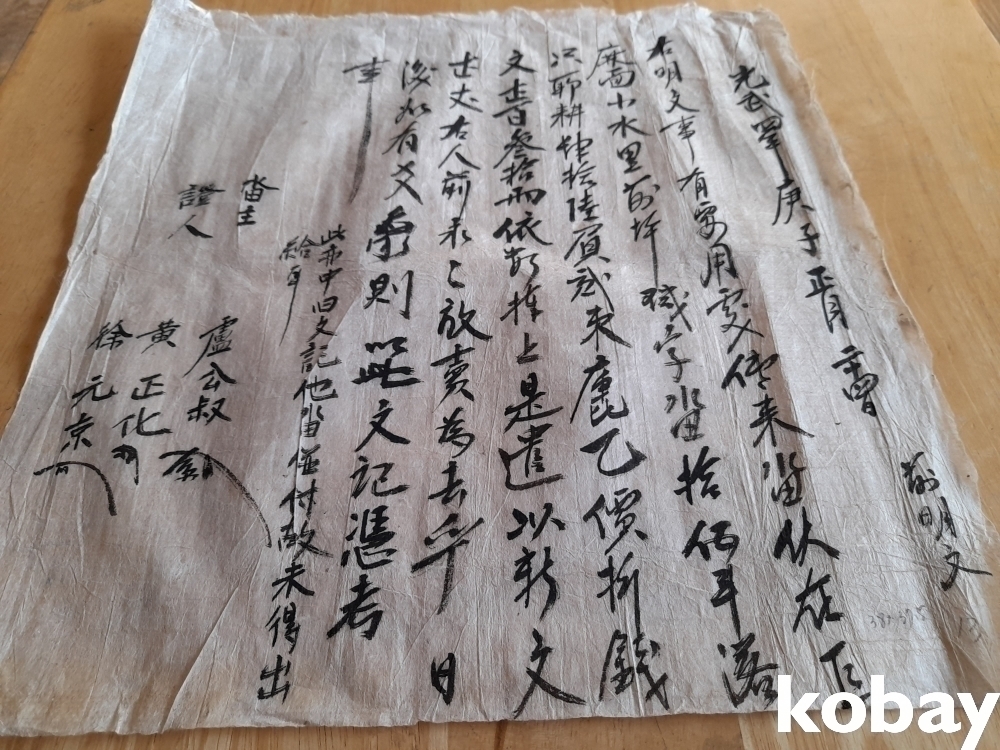 光武四年庚子正月二十四日 前明文
右明文事有要用處傳來畓伏在
麻面小水里前坪 字畓拾伍斗落
只耶耕肆拾陸負貳束 乙價折錢
文壹百參拾兩依數捧上是遣以新文
壹丈右人前永〻放賣爲去乎日
後如有爻象則此文記憑考
事
此亦中旧文記他畓幷付故未得出
給事
畓主 盧公叔
證人 黃正化
徐元京
kobay